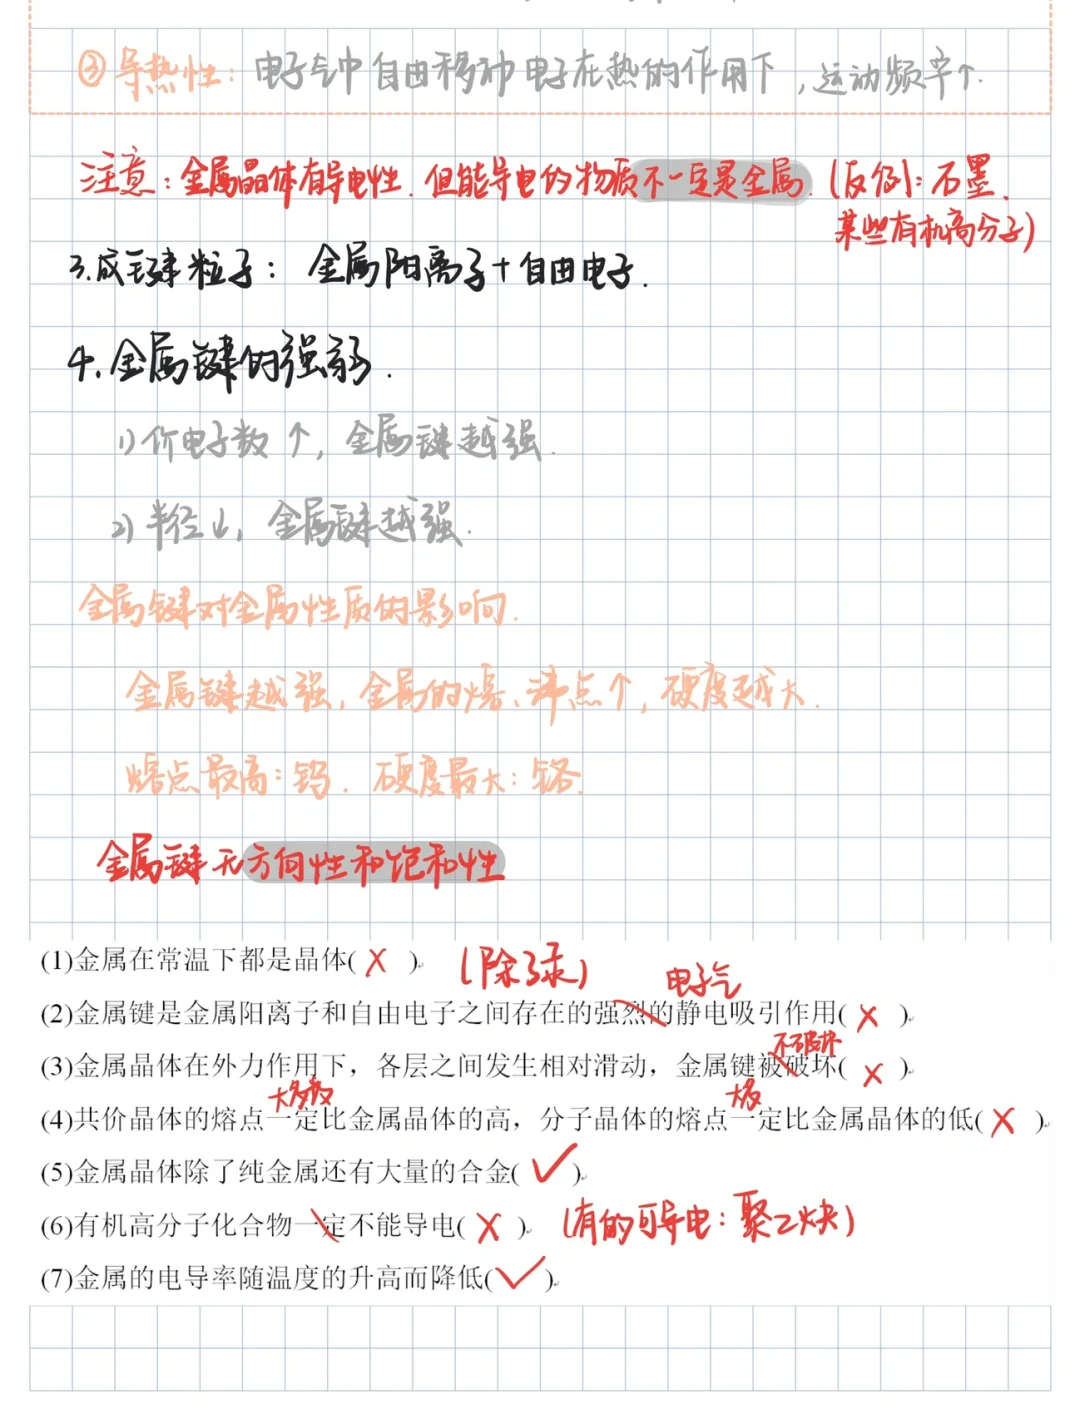 ③导热性：电子气中自由移动电子在热的作用下，运动频率↑.
注意：金属晶体有导电性.但能导电的物质不一定是金属.(反例：石墨、
某些有机高分子)
3.成键粒子：金属阳离子+自由电子.
4.金属键的强弱.
1)价电子数↑，金属键越强.
2)半径↓，金属键越强.
金属键对金属性质的影响.
金属键越强，金属的熔、沸点↑，硬度越大.
熔点最高：钨.硬度最大：铬.
金属键无方向性和饱和性
(1)金属在常温下都是晶体( × ). (除了汞)
电子气
(2)金属键是金属阳离子和自由电子之间存在的强烈的静电吸引作用( × ).
不破坏
(3)金属晶体在外力作用下，各层之间发生相对滑动，金属键被破坏( × ).
大多数 大多
(4)共价晶体的熔点一定比金属晶体的高，分子晶体的熔点一定比金属晶体的低( × ).
(5)金属晶体除了纯金属还有大量的合金( ✓ ).
(6)有机高分子化合物一定不能导电( × ). (有的可导电：聚乙炔)
(7)金属的电导率随温度的升高而降低( ✓ ).